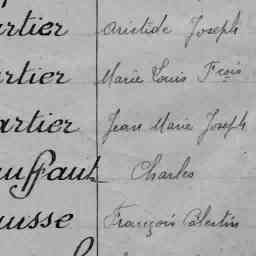 artier Aristide Joseph
artier Marie Louis Frçois
artier Jean Marie Joseph
auffaut Charles
ousse François Célestin